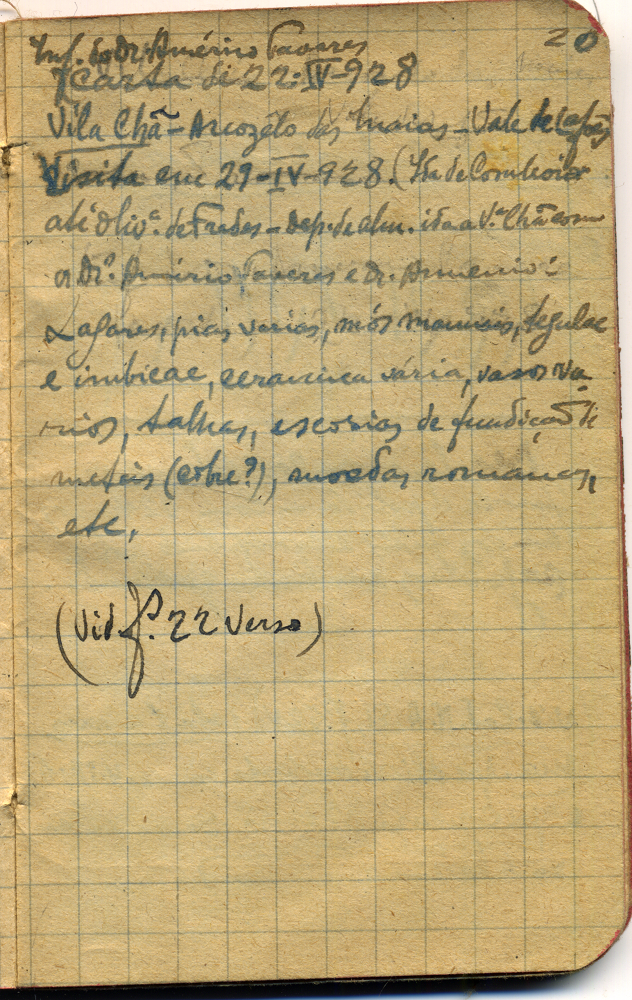 20
Inf. do Dr. Amério Tavares
carta de 22-IV-928
Vila Chã - Arcozelo das Maias - Vale de Lafões
Visita em 29-IV-928. (Ida de Comboio
até Oliv.ª de Frades - dep. de alm. ida a V.ª Chã com
o Dr. Amério Tavares e Dr. Armenio:
Lagares, pias varias, mós manuais, tegulae
e imbicae, ceramica vária, vasos vá-
rios, talhas, escorias de fundição de
metais (cobre?), moedas romanas,
etc.
(Vid f.º 22 verso)